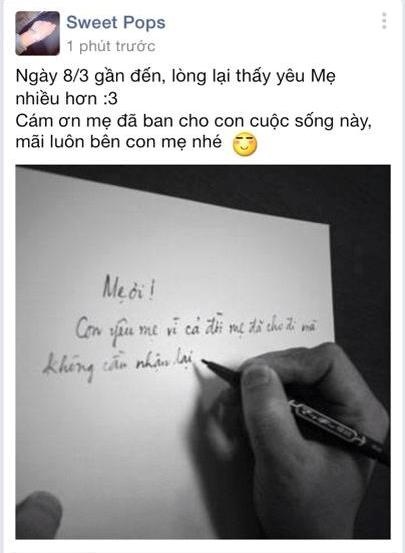 Sweet Pops
1 phút trước
Ngày 8/3 gần đến, lòng lại thấy yêu Mẹ
nhiều hơn :3
Cám ơn mẹ đã ban cho con cuộc sống này,
mãi luôn bên con mẹ nhé
Mẹ ơi!
Con yêu mẹ vì cả đời mẹ đã cho đi mà
không cần nhận lại